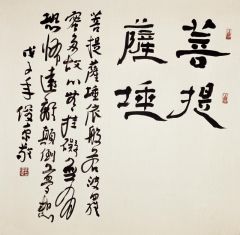 菩提
薩埵
菩提薩埵依般若波羅
蜜多故心無挂礙無有
恐怖遠離顛倒夢想
年